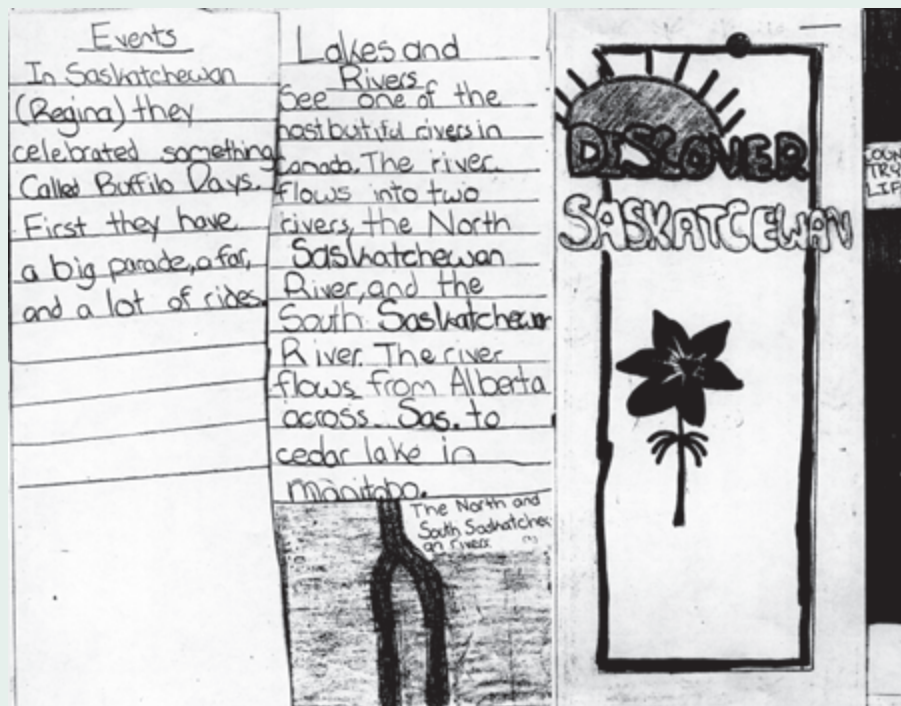 Events
In Saskatchewan
(Regina) they
celebrated something
Called Buffilo Days.
First they have
a big parade, a far,
and a lot of rides.
Lakes and
Rivers
See one of the
most butiful rivers in
Canada. The river
flows into two
rivers, the North
Saskatchewan
River, and the
South Saskatchewan
River. The river
flows from Alberta
across Sas. to
cedar lake in
manitoba.
The North and
South Saskatchew
an rivers
DISCOVER
SASKATCEWAN
COUN
TRY
LIF